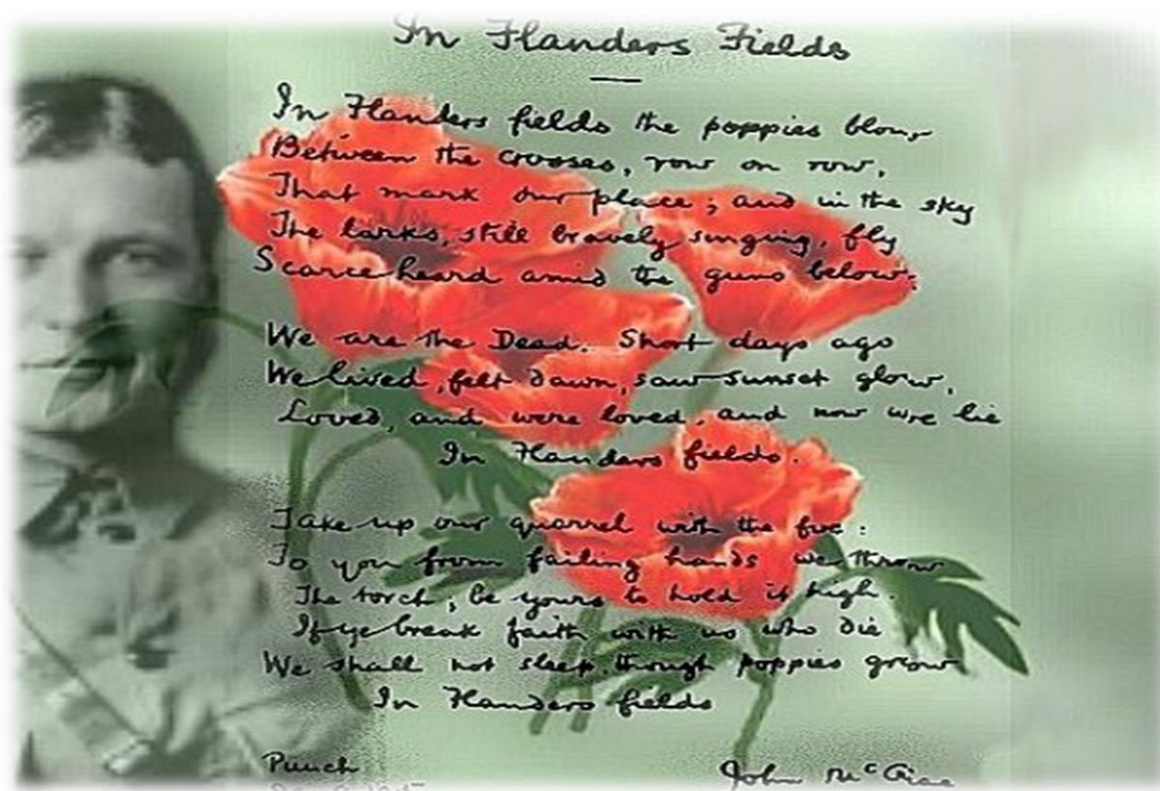 In Flanders Fields
In Flanders fields the poppies blow,
Between the crosses, row on row,
That mark our place; and in the sky
The larks, still bravely singing, fly
Scarce heard amid the guns below.
We are the Dead. Short days ago
We lived, felt dawn, saw sunset glow,
Loved, and were loved, and now we lie
In Flanders fields.
Take up our quarrel with the foe:
To you from failing hands we throw
The torch; be yours to hold it high.
If ye break faith with us who die
We shall not sleep, though poppies grow
In Flanders fields
Punch
John McCrae